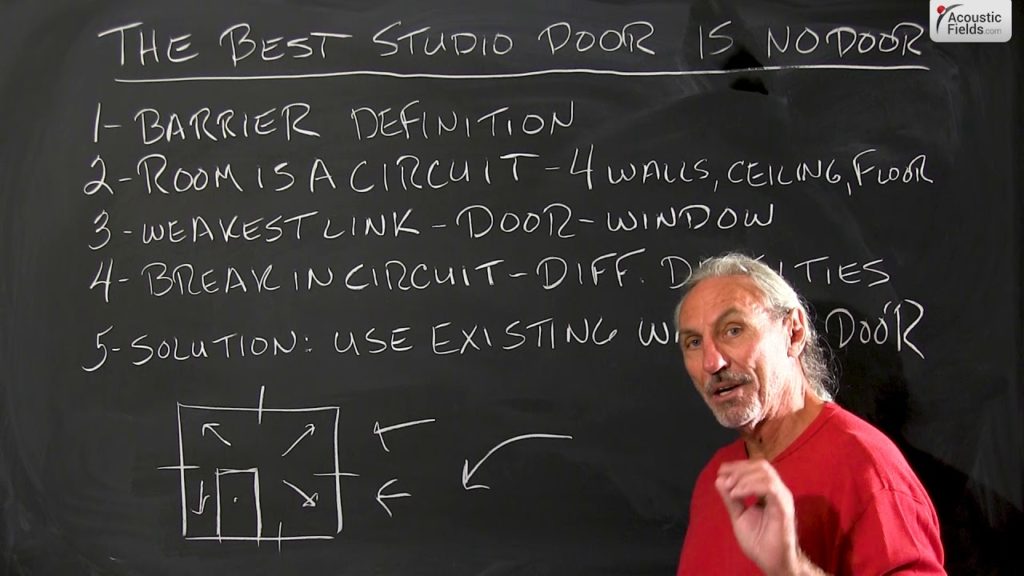 THE BEST STUDIO DOOR IS NO DOOR
Acoustic
Fields.com
1- BARRIER DEFINITION
2- ROOM IS A CIRCUIT - 4 WALLS, CEILING, FLOOR
3- WEAKEST LINK - DOOR - WINDOW
4- BREAK IN CIRCUIT - DIFF.
5- SOLUTION: USE EXISTING DOOR